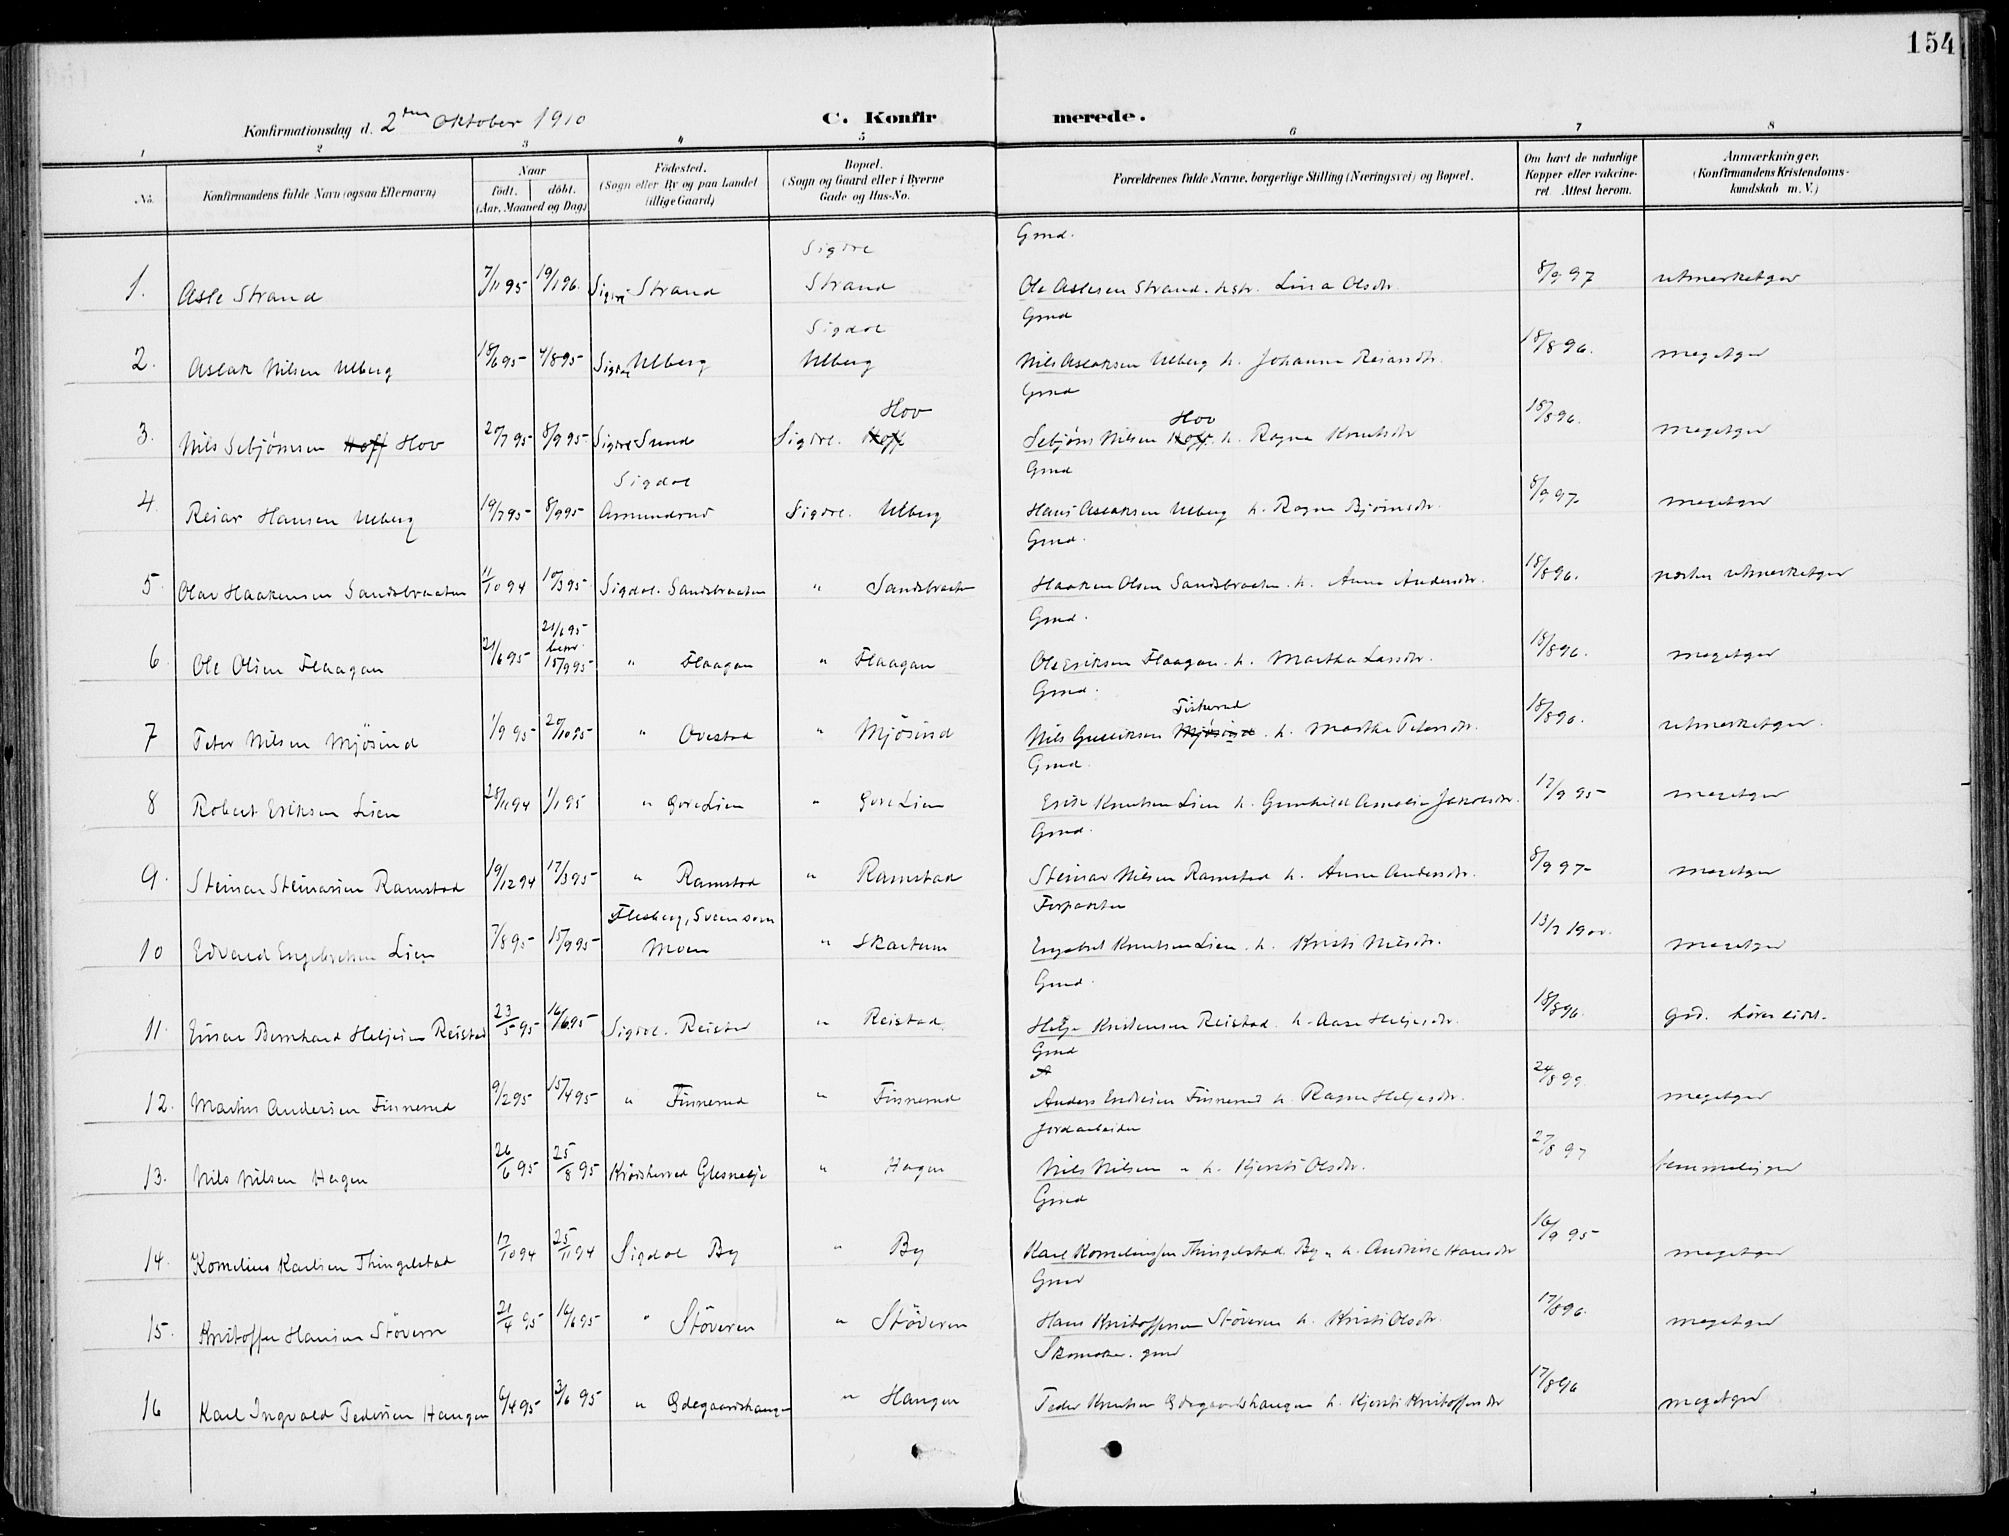 154
Konfirmationsdag d. 2den Oktober 1910
C. Konfirmerede.
1 2 3 4 5 6 7 8
No. Konfirmandens fulde Navn (ogsaa Efternavn) Naar födt. döbt. (Aar, Maaned og Dag) Födested. (Sogn eller By og paa Landet tillige Gaard) Bopæl. (Sogn og Gaard eller i Byerne Gade og Hus-No. Forældrenes fulde Navne, borgerlige Stilling (Næringsvei) og Bopæl. Om havt de naturlige Kopper eller vakcineret. Attest herom. Anmærkninger. (Konfirmandens Kristendomskundskab m. V.)
Sigdal Gmd.
1. Asle Strand 7/11 95 19/1 96. Sigdal Strand Strand Ole Aslesen Strand. hstr. Lina Olsdtr. 8/9 97 utmerketgod
Sigdal Gmd
2. Aslak Nilsen Ulberg 18/6 95 4/8 95 Sigdal Ulberg Ulberg Nils Aslaksen Ulberg h. Johanne Reiarsdtr. 18/8 96. megetgod
Hov Gmd
Hov
3. Nils Sebjörnsen Hoff Hov 20/7 95 8/9 95 Sigdal Sund Sigdal. Hoff Sebjörn Nilsen Hoff. h. Ragne Knutsdtr 18/8 96. megetgod
Sigdal Gmd
4. Reiar Hansen Ulberg 19/7 95 8/9 95 Amundrud Sigdal. Ulberg Hans Aslaksen Ulberg h. Ragne Björnsdtr. 8/9 97 megetgod
Gmd.
5. Olav Haakensen Sandsbraaten 11/10 94 10/3 95 Sigdal. Sandsbraaten " Sandsbraaten Haaken Olsen Sandsbraaten. h. Anne Andersdtr. 18/8 96. næsten utmerketgod
21/6 95 Gmd.
6. Ole Olsen Flaagan 21/6 95 15/9 95 " Flaagan " Flaagan Ole Eriksen Flaagan. h. Martha Larsdtr. 18/8 96. megetgod
Gmd.
Fiskerud
7 Peter Nilsen Mjösund 1/9 95 20/10 95 " Ovestad " Mjösund Nils Gulliksen Mjösund. h. Marthe Petersdtr. 18/8 96. utmerketgod.
Gmd.
8 Robert Eriksen Lien 28/11 94 1/1 95 " Lien " Lien Erik Knutsen Lien h. Gunhild Amalie Jakobsdtr. 17/9 95 megetgod
Gmd.
9. Steinar Steinarsen Ramstad 19/12 94 17/3 95 " Ramstad " Ramstad Steinar Nilsen Ramstad h. Anne Andersdtr. 8/9 97 megetgod
Flesberg, Forpagter
10 Edvard Engebretsen Lien 7/8 95 15/9 95 Moen " Skartum Engebret Knutsen Lien. h. Kristi Nilsdtr. 13/7 1900. megetgod
Gmd.
11. Einar Bernhard Heljesen Reistad 23/5 95 16/6 95 Sigdal. Reistad " Reistad. Helje Kristensen Reistad. h. Aase Heljesdtr. 18/8 96. god.
Gmd
12. Martin Andersen Finnerud 9/2 95 15/4 95 " Finnerud " Finnerud Anders Endresen Finnerud h. Ragne Heljesdtr. 24/8 99. megetgod
Jordarbeider
13. Nils Nilsen Hagen 26/6 95 25/8 95 Krödsherred Glesnelje " Hagen Nils Nilsen " h. Kjersti Olsdtr. 27/8 97 temmeliggod
Gmd
14. Kornelius Karlsen Thingelstad 17/10 94 25/11 94 Sigdal By " By Karl Korneliussen Thingelstad By " h. Andrine Hansdtr 16/9 95 megetgod
Gmd
15. Kristoffer Hansen Stöveren 21/4 95 16/6 95 " Stöveren " Stöveren Hans Kristoffersen Stöveren h. Kristi Olsdtr. 17/8 96. megetgod
Skomaker. gmd
16 Karl Ingvald Pedersen Haugen 6/4 95 3/6 95 " Ödegaardshaugen " Haugen Peder Knutsen Ödegaardshaugen h. Kjersti Kristoffersdtr 17/8 96 megetgod